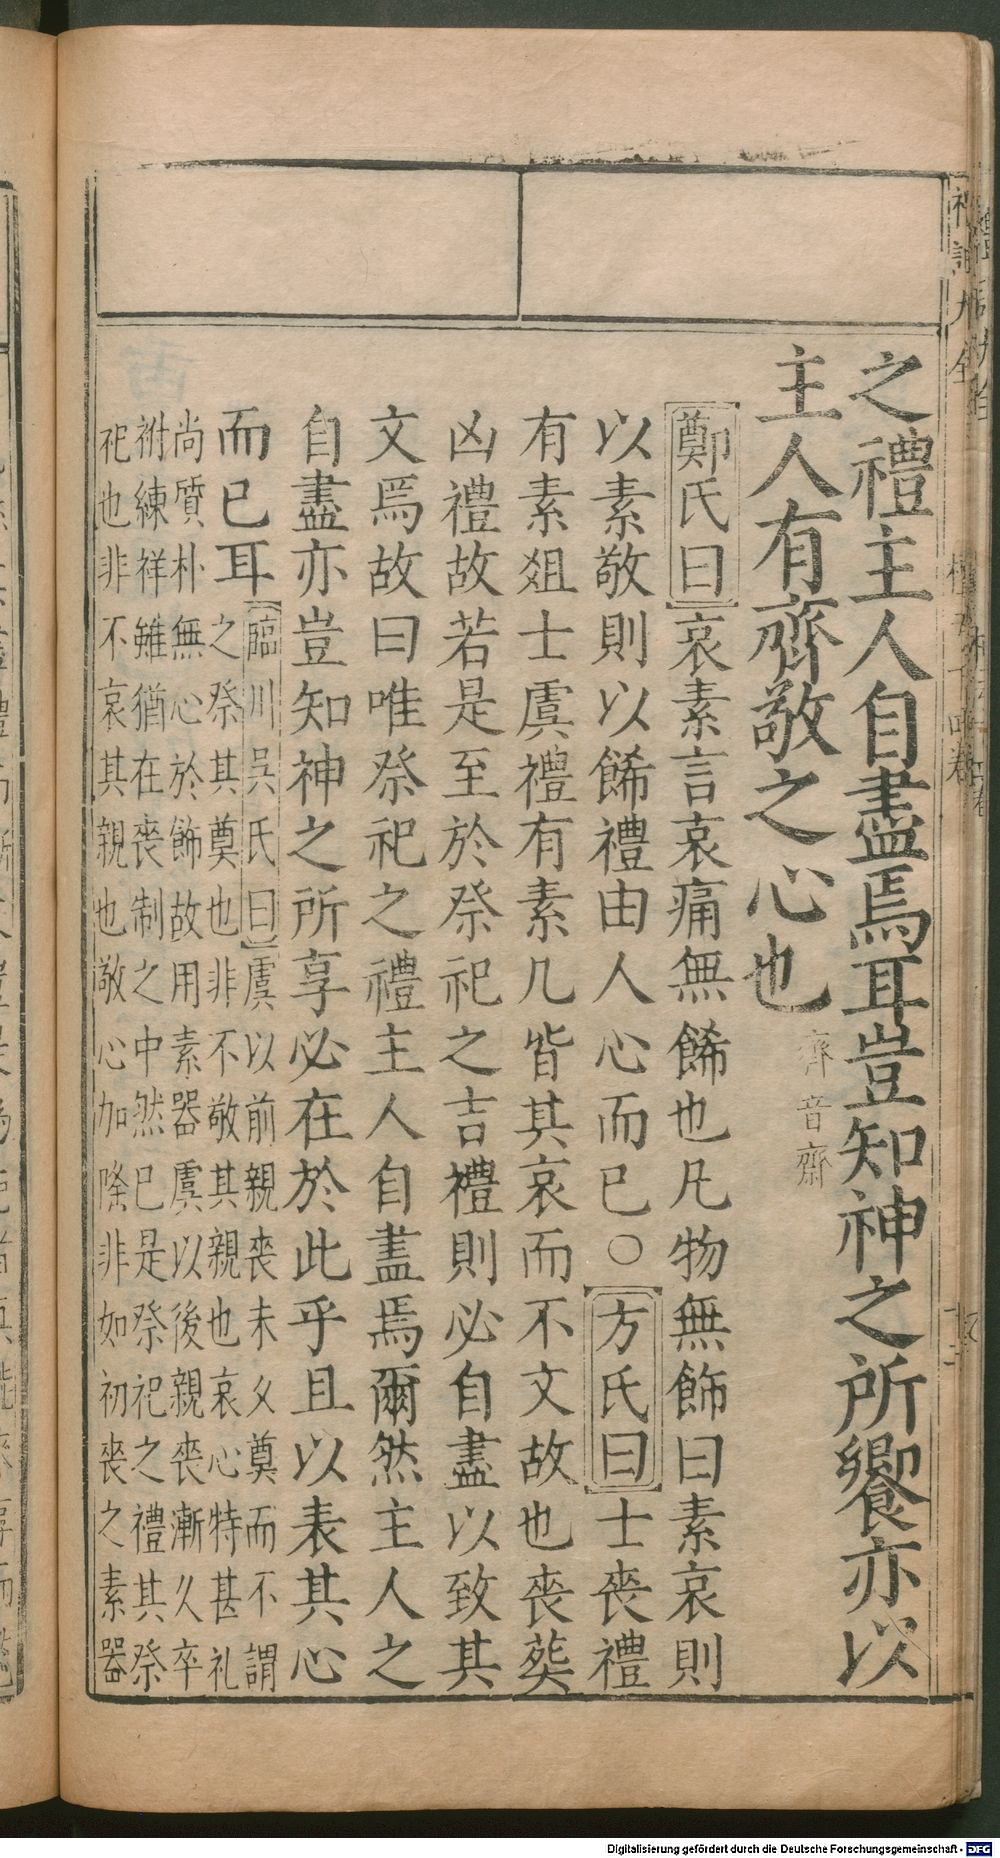 之禮主人自盡焉耳豈知神之所饗亦以
主人有齊敬之心也 齊音齋
鄭氏曰哀素言哀痛無餙也凡物無飾曰素哀則
以素敬則以餙禮由人心而已○方氏曰士喪禮
有素俎士虞禮有素几皆其哀而不文故也喪葬
凶禮故若是至於祭祀之吉禮則必自盡以致其
文焉故曰唯祭祀之禮主人自盡焉爾然主人之
自盡亦豈知神之所享必在於此乎且以表其心
而已耳
臨川吳氏曰虞以前親喪未久奠而不謂
之祭其奠也非不敬其親也哀心特甚礼
尚質朴無心於飾故用素器虞以後親喪漸久卒
祔練祥雖猶在喪制之中然已是祭祀之禮其祭
祀也非不哀其親也敬心加隆非如初喪之素器
Digitalisierung gefördert durch die Deutsche Forschungsgemeinschaft - DFG